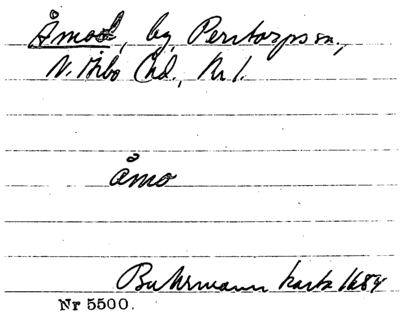 Åmost, by, Perstorps sn,
N. Åsbo hd., Kr l.
åmo
Buhrmann karta 1684
Nr 5500.